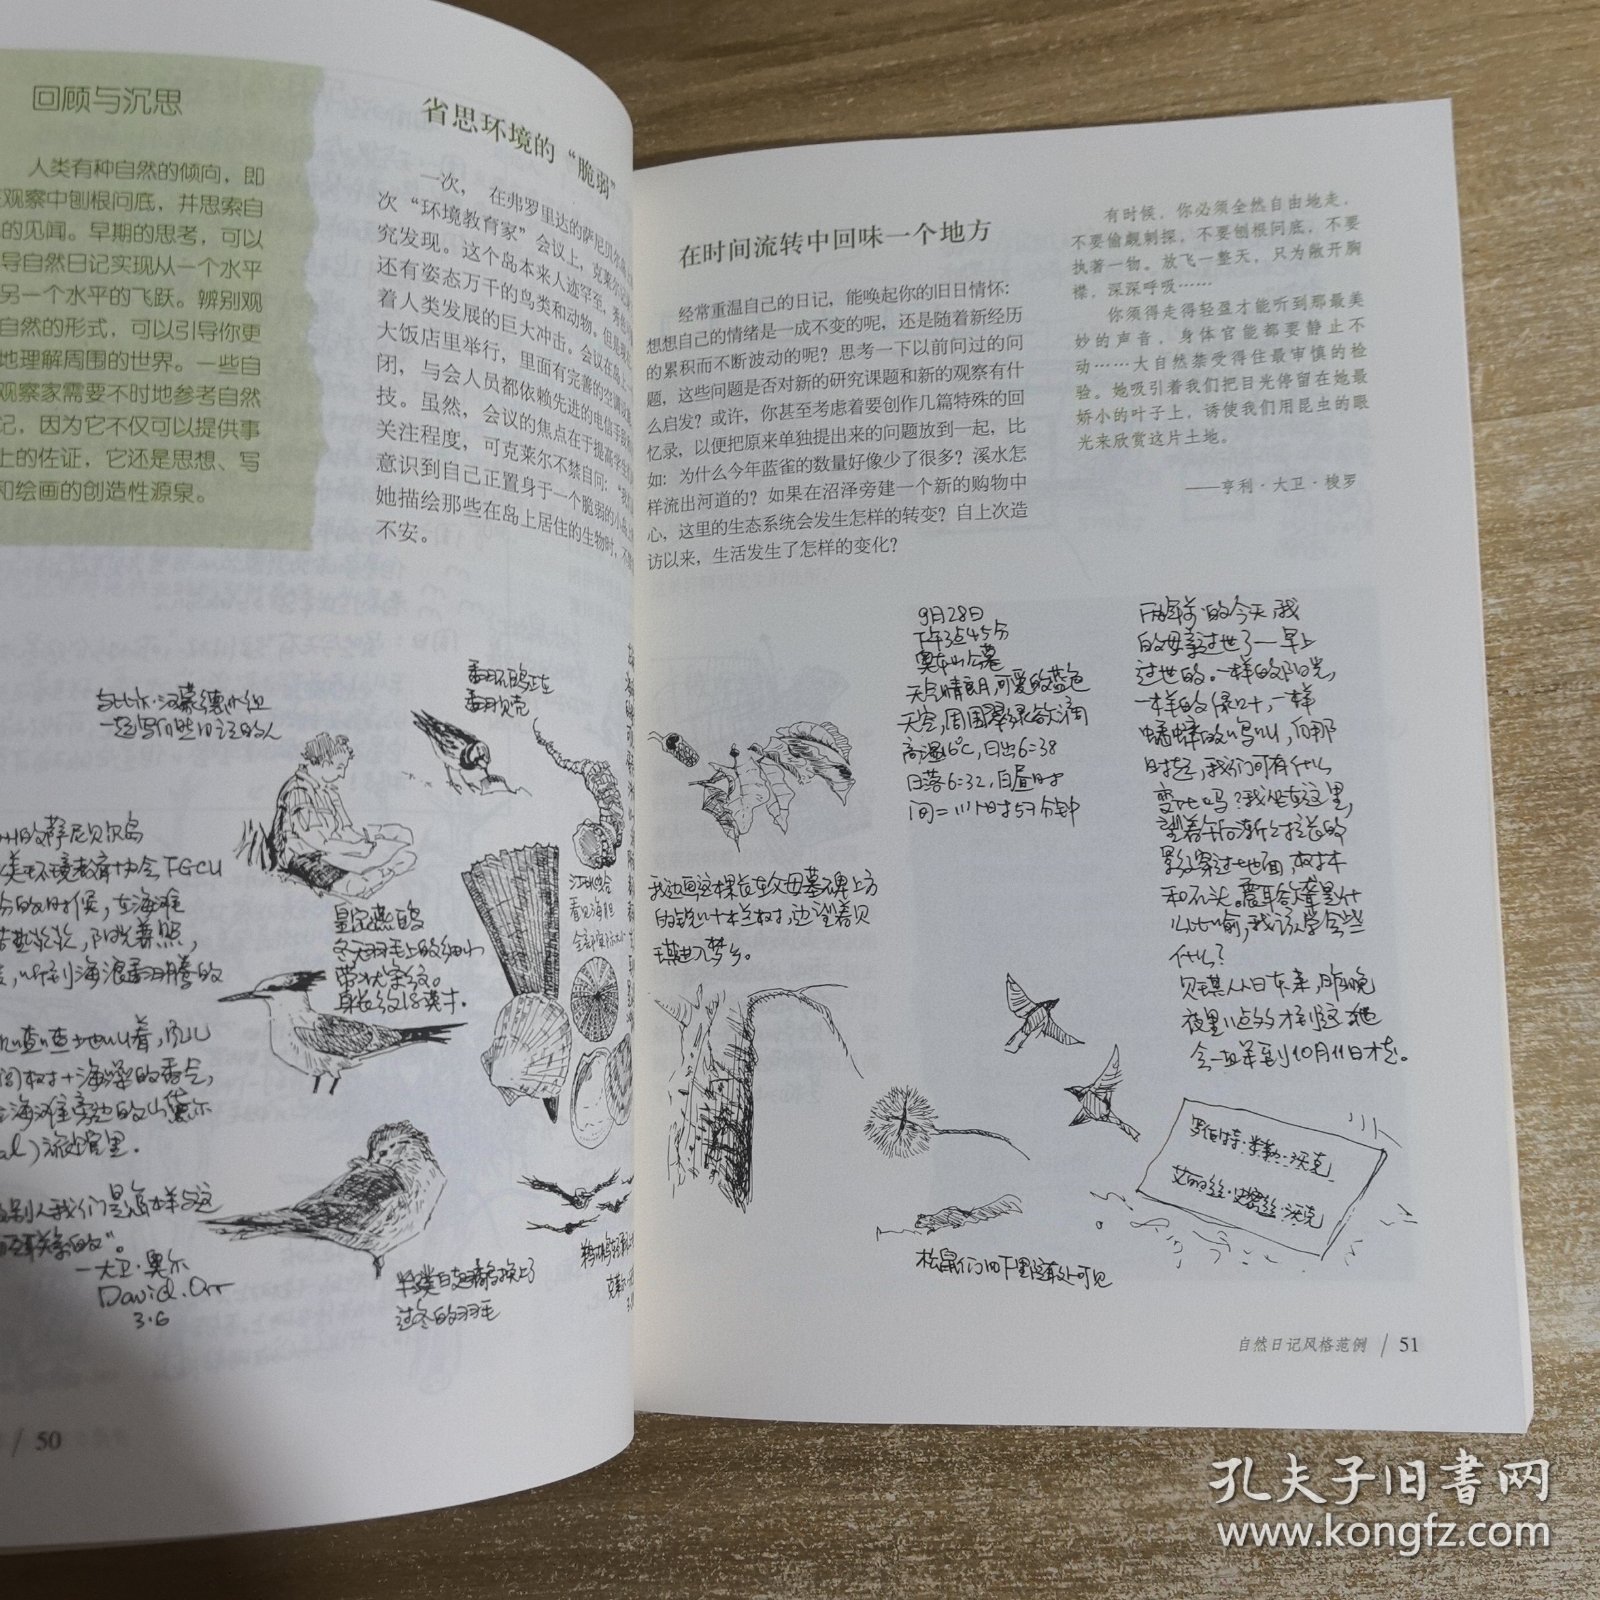 回顾与沉思
人类有种自然的倾向，即
观察中刨根问底，并思索自
的见闻。早期的思考，可以
导自然日记实现从一个水平
另一个水平的飞跃。辨别观
自然的形式，可以引导你更
地理解周围的世界。一些自
观察家需要不时地参考自然
记，因为它不仅可以提供事
上的佐证，它还是思想、写
和绘画的创造性源泉。
省思环境的“脆弱”
一次，在弗罗里达的萨尼贝尔岛
次“环境教育家”会议上，克莱尔
究发现。这个岛本来人迹罕至，
还有姿态万千的鸟类和动物。但是
着人类发展的巨大冲击。会议在岛上
大饭店里举行，里面有完善的空调
闭，与会人员都依赖先进的电信手段
技。虽然，会议的焦点在于提高学生
关注程度，可克莱尔不禁自问：“我
意识到自己正置身于一个脆弱的小岛
她描绘那些在岛上居住的生物时，不
不安。
一起写的日记的人
翻石鹬正在
翻贝壳
皇家燕鸥
冬天羽毛上的细小
带状条纹。
身长约18英寸。
看见海胆
的萨尼贝尔岛
环境教育协会FGCU
的时候，在海滩
阳光普照，
听到海浪翻腾的
—大卫·奥尔
David.Orr
3.6
过冬的羽毛
/ 50
在时间流转中回味一个地方
经常重温自己的日记，能唤起你的旧日情怀：
想想自己的情绪是一成不变的呢，还是随着新经历
的累积而不断波动的呢？思考一下以前问过的问
题，这些问题是否对新的研究课题和新的观察有什
么启发？或许，你甚至考虑着要创作几篇特殊的回
忆录，以便把原来单独提出来的问题放到一起，比
如：为什么今年蓝雀的数量好像少了很多？溪水怎
样流出河道的？如果在沼泽旁建一个新的购物中
心，这里的生态系统会发生怎样的转变？自上次造
访以来，生活发生了怎样的变化？
有时候，你必须全然自由地走，
不要偷觑刺探，不要刨根问底，不要
执着一物。放飞一整天，只为敞开胸
襟，深深呼吸……
你须得走得轻盈才能听到那最美
妙的声音，身体官能都要静止不
动……大自然禁受得住最审慎的检
验。她吸引着我们把目光停留在她最
娇小的叶子上，诱使我们用昆虫的眼
光来欣赏这片土地。
——亨利·大卫·梭罗
9月28日
下午3点45分
奥本山公墓
天气晴朗，可爱的蓝色
天空，周围翠绿欲滴
高温16℃，日出6:38
日落6:32，白昼时
间=11小时57分钟
我边画这棵长在父母墓碑上方
的锐叶木兰树，边望着贝
琪进入梦乡。
两年前的今天，我
的母亲过世了——早上
过世的。一样的阳光，
一样的绿叶，一样
蟋蟀的鸣叫，但那
时起，我们可有什么
变化吗？我坐在这里，
望着午后渐渐拉长的
影子穿过地面，树木
和石头。震耳欲聋是什
么比喻，我该学会些
什么？
贝琪从日本来，昨晚
夜里11点多才到这，她
会一直呆到10月11日才走。
罗伯特·米勒·沃克
艾丽丝·史密丝·沃克
松鼠们四下里随处可见
自然日记风格范例 / 51
孔夫子旧书网
www.kongfz.com